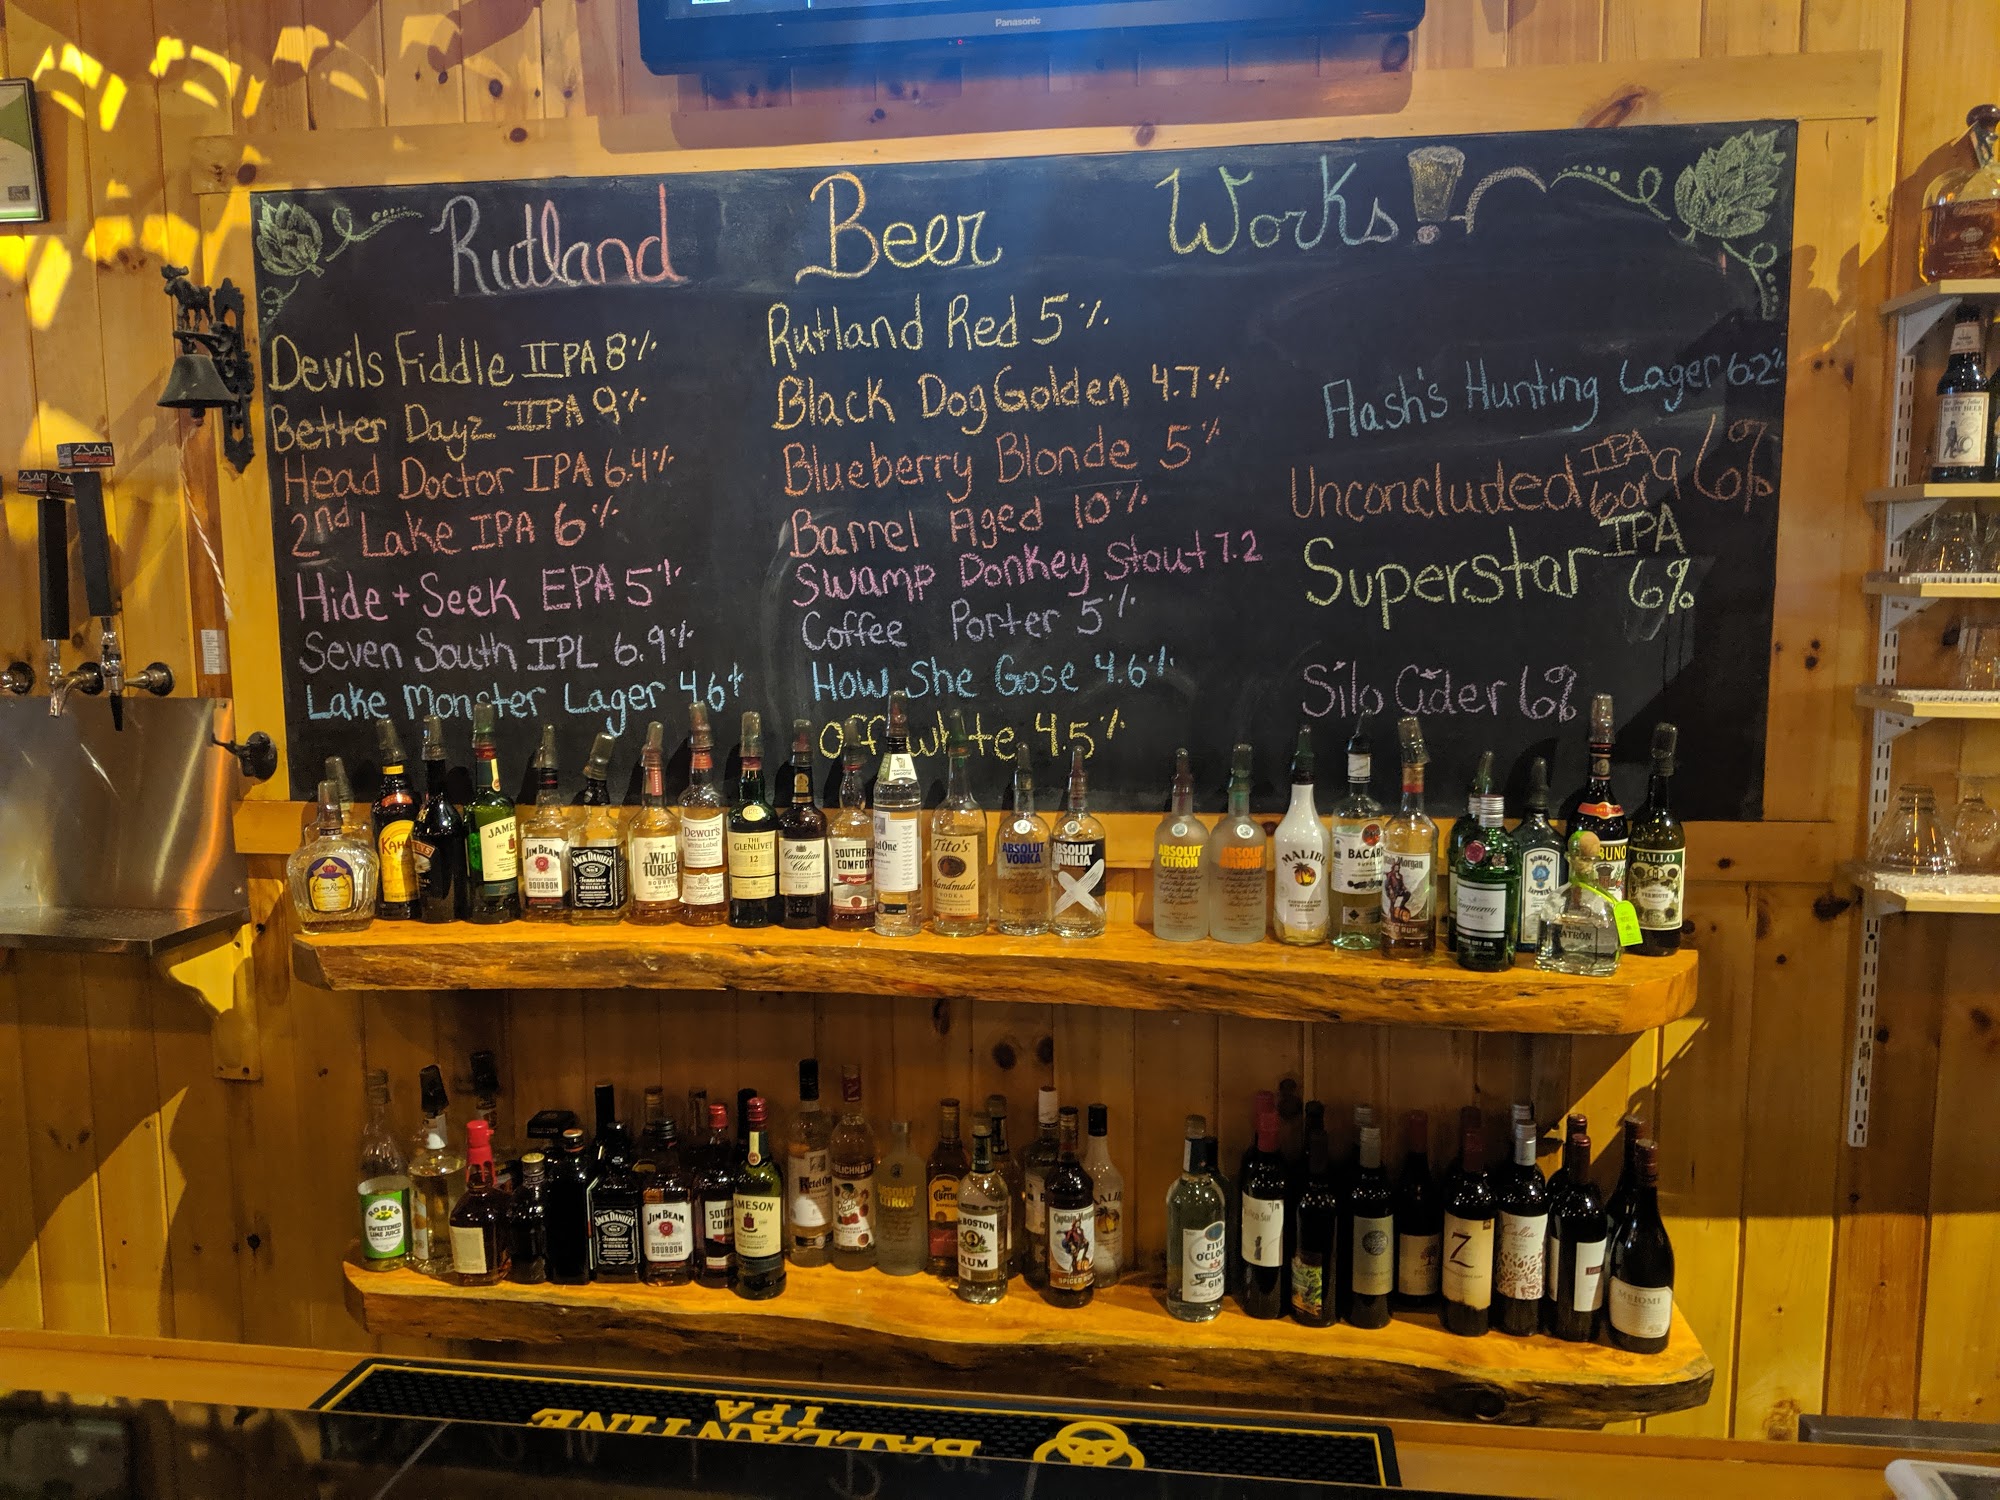 Panasonic
Rutland Beer Works!
Devils Fiddle IIPA 8%
Better Dayz IIPA 9%
Head Doctor IPA 6.4%
2nd Lake IPA 6%
Hide + Seek EPA 5%
Seven South IPL 6.9%
Lake Monster Lager 4.6
Rutland Red 5%
Black Dog Golden 4.7%
Blueberry Blonde 5%
Barrel Aged 10%
Swamp Donkey Stout 7.2
Coffee Porter 5%
How She Gose 4.6%
Off white 4.5%
Flash's Hunting Lager 6.2%
Unconcluded IPA 6%
Superstar IPA
6%
Silo Cider 6%
Crown Royal
JIM BEAM
BOURBON
JACK DANIEL'S
Tennessee
WHISKEY
WILD
Dewar's
White Label
THE
GLENLIVET
12
Canadian
Club
1858
SOUTHERN
Tito's
Handmade
VODKA
ABSOLUT
VODKA
ABSOLUT
ABSOLUT
CITRON
ABSOLUT
MALIBU
Morgan
BOMBAY
SAPPHIRE
GALLO
VERMOUTH
ROSE'S
SWEETENED
LIME JUICE
JACK DANIEL'S
Tennessee
WHISKEY
JIM BEAM
BOURBON
JAMESON
Ketel One
ABSOLUT
CITRON
Jose
Cuervo
BOSTON
RUM
Captain Morgan
SPICED RUM
FIVE
O'CLOCK
GIN
Z
MEIOMI
BALLANTINE
IPA
ROOT BEER